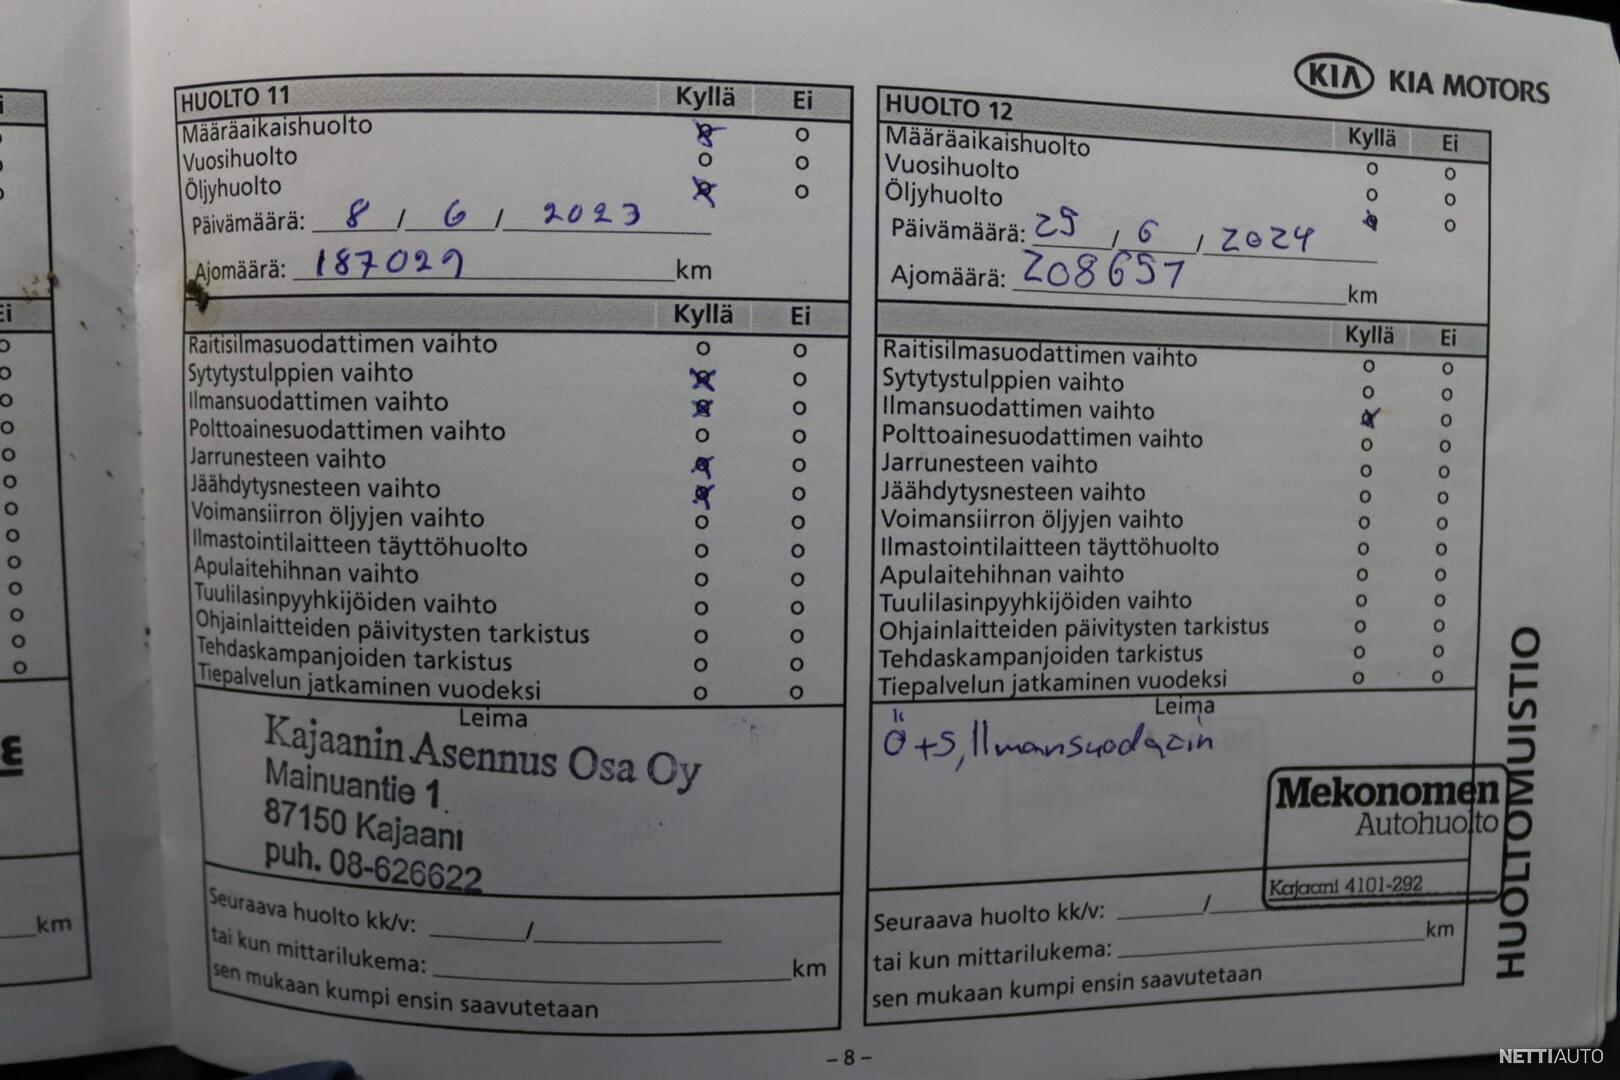 KIA KIA MOTORS
HUOLTO 11 Kyllä Ei
Määräaikaishuolto
Vuosihuolto
Öljyhuolto
Päivämäärä: 8 / 6 / 2023
Ajomäärä: 187029 km
Kyllä Ei
Raitisilmasuodattimen vaihto
Sytytystulppien vaihto
Ilmansuodattimen vaihto
Polttoainesuodattimen vaihto
Jarrunesteen vaihto
Jäähdytysnesteen vaihto
Voimansiirron öljyjen vaihto
Ilmastointilaitteen täyttöhuolto
Apulaitehihnan vaihto
Tuulilasinpyyhkijöiden vaihto
Ohjainlaitteiden päivitysten tarkistus
Tehdaskampanjoiden tarkistus
Tiepalvelun jatkaminen vuodeksi
Leima
Kajaanin Asennus Osa Oy
Mainuantie 1
87150 Kajaani
puh. 08-626622
Seuraava huolto kk/v: /
tai kun mittarilukema: km
sen mukaan kumpi ensin saavutetaan
HUOLTO 12 Kyllä Ei
Määräaikaishuolto
Vuosihuolto
Öljyhuolto
Päivämäärä: 25 / 6 / 2024
Ajomäärä: 208657 km
Kyllä Ei
Raitisilmasuodattimen vaihto
Sytytystulppien vaihto
Ilmansuodattimen vaihto
Polttoainesuodattimen vaihto
Jarrunesteen vaihto
Jäähdytysnesteen vaihto
Voimansiirron öljyjen vaihto
Ilmastointilaitteen täyttöhuolto
Apulaitehihnan vaihto
Tuulilasinpyyhkijöiden vaihto
Ohjainlaitteiden päivitysten tarkistus
Tehdaskampanjoiden tarkistus
Tiepalvelun jatkaminen vuodeksi
Leima
Ö+S, Ilmansuodazin
Mekonomen
Autohuolto
Kajaani 4101-292
Seuraava huolto kk/v: /
tai kun mittarilukema: km
sen mukaan kumpi ensin saavutetaan
HUOLTOMUISTIO
km
– 8 –
NETTIAUTO